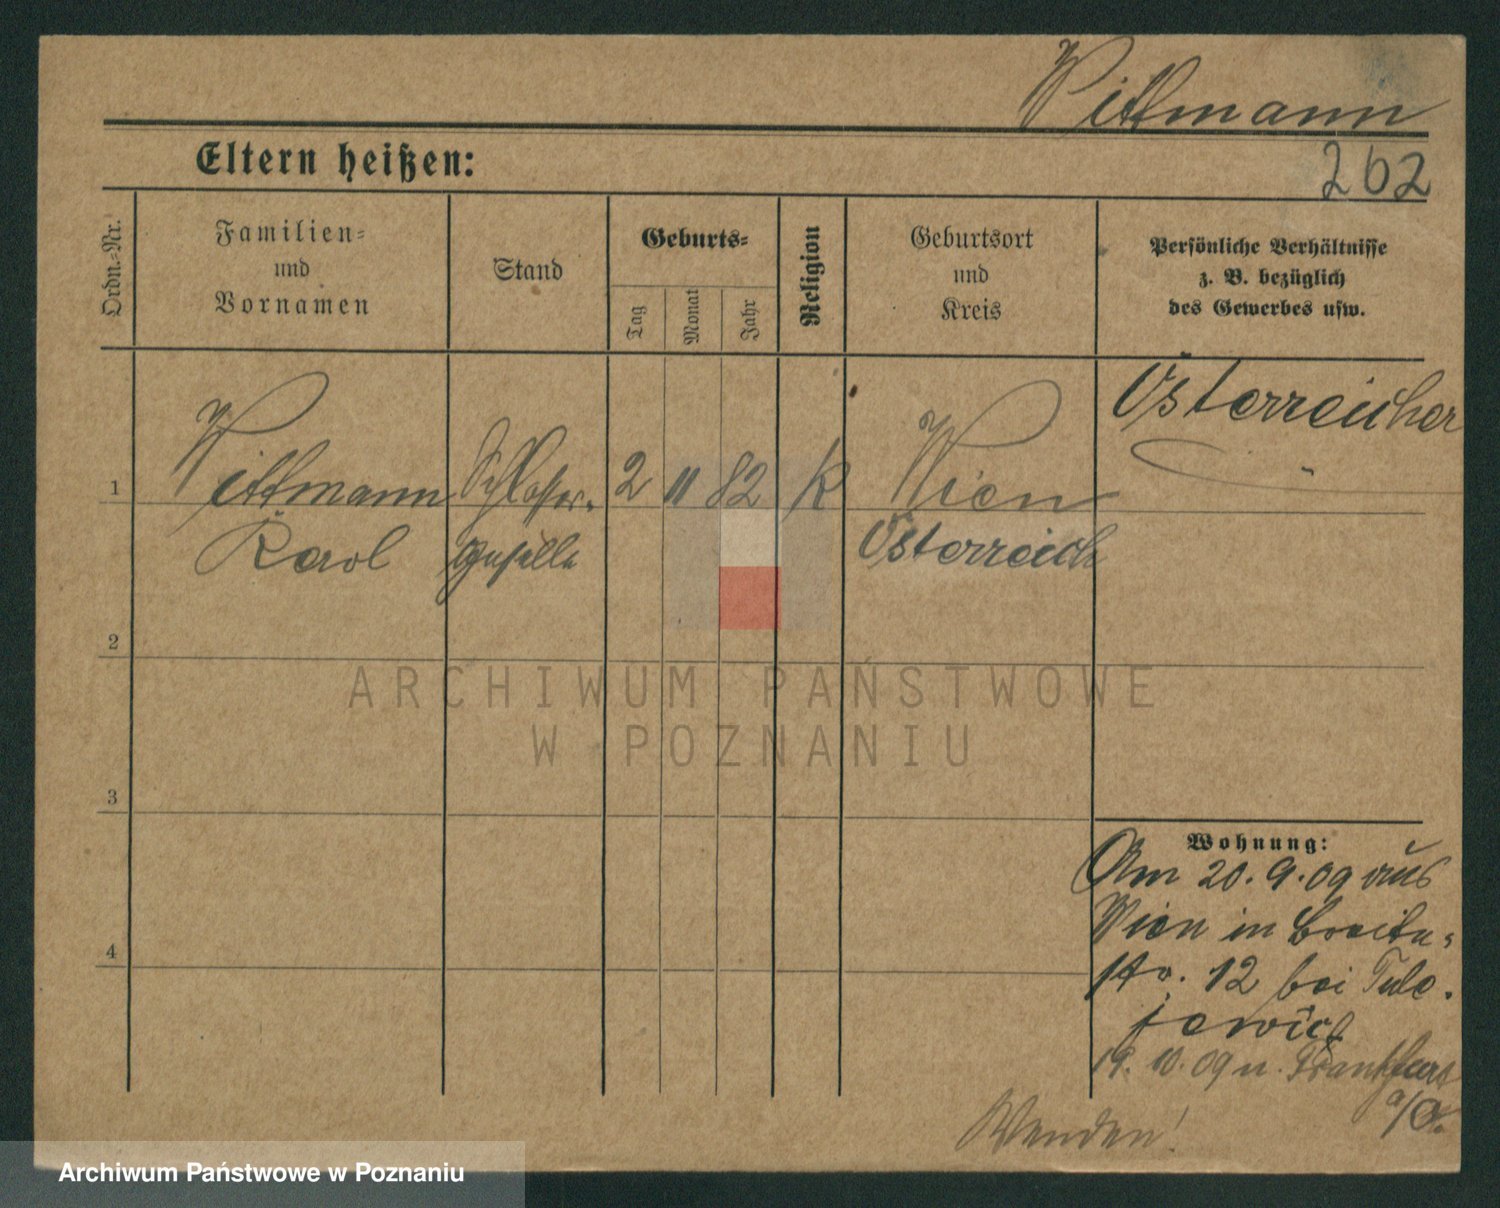 Wittmann
262
Eltern heißen:
Ordn.-Nr.
Familien-
und
Vornamen
Stand
Geburts-
Tag
Monat
Jahr
Religion
Geburtsort
und
Kreis
Persönliche Verhältnisse
z. B. bezüglich
des Gewerbes usw.
1
Wittmann
Karol
Schlosser-
geselle
2 11 82
K
Wien
Österreich
Österreicher
2
3
4
Wohnung:
Am 20.9.09 aus
Wien in Breite-
str. 12 bei
19.10.09 n. Frankfurt
a/O.
Wenden!
ARCHIWUM PAŃSTWOWE
W POZNANIU
Archiwum Państwowe w Poznaniu